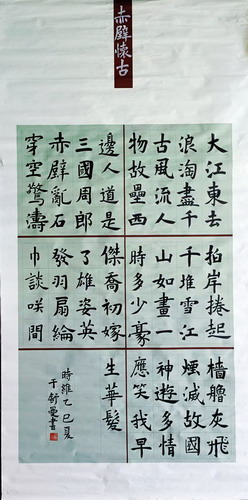 赤壁懷古
大江東去
浪淘盡千
古風流人
物故壘西
邊人道是
三國周郎
赤壁亂石
穿空驚濤
拍岸捲起
千堆雪江
山如畫一
時多少豪
傑喬初嫁
了雄姿英
發羽扇綸
巾談咲間
檣艣灰飛
煙滅故國
神遊多情
應笑我早
生華髮
時維乙巳夏
于舒曼書